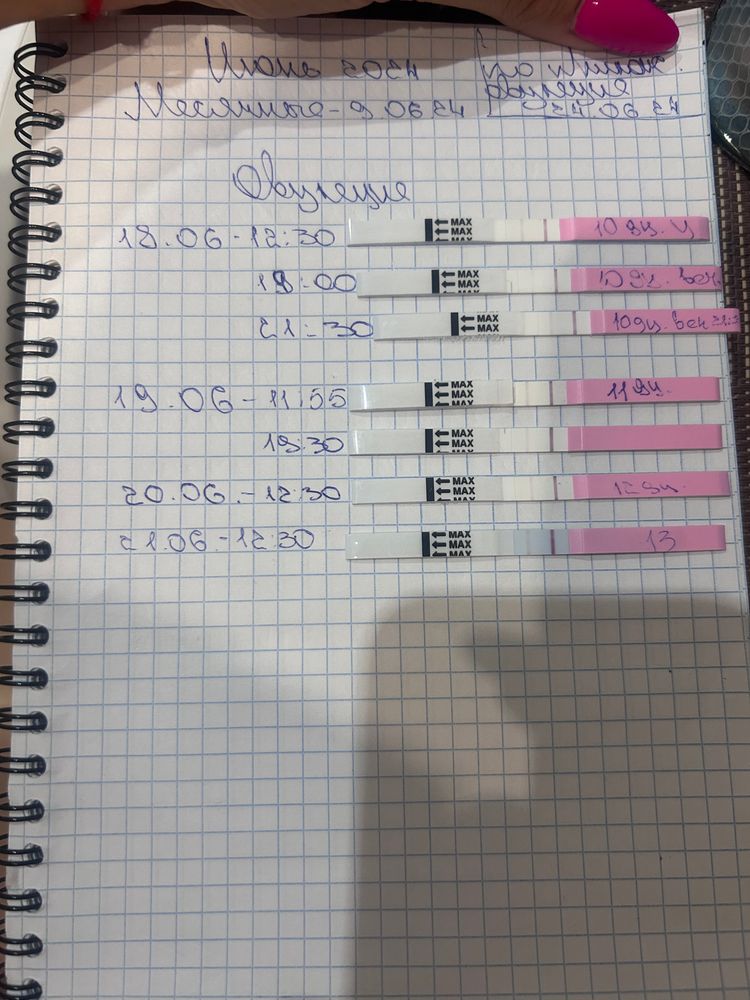 Июнь 2024
по прилож.
овуляция
24 06 24
Месячные - 9.06 24
Овуляция
18.06 - 12:30
MAX
MAX
MAX
10 дц. у
18:00
MAX
MAX
MAX
10 дц. веч.
21:30
MAX
MAX
10дц. веч 21:3
19.06 - 11:55
MAX
MAX
MAX
11 дц.
18:30
MAX
MAX
MAX
20.06. - 12:30
MAX
MAX
MAX
12 дц.
21.06 - 12:30
MAX
MAX
MAX
13